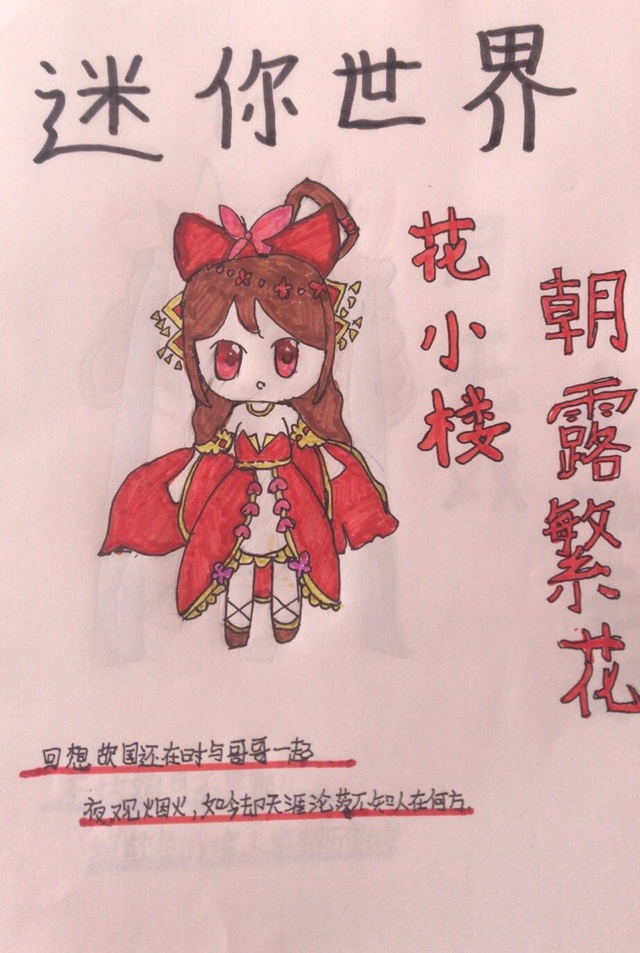 迷你世界
花小楼
朝露繁花
回想故国还在时与哥哥一起
夜观烟火，如今却天涯沦落不知人在何方